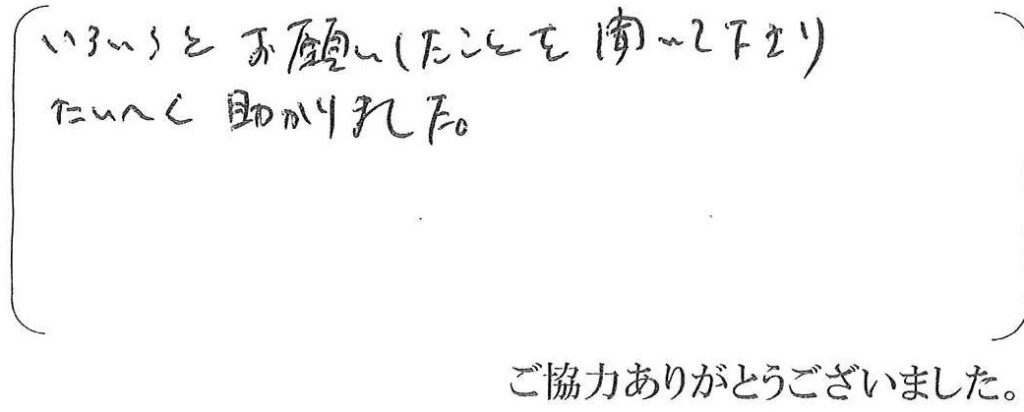 いろいろと お願いしたことを 聞いて下さり
たいへん 助かりました。
ご協力ありがとうございました。